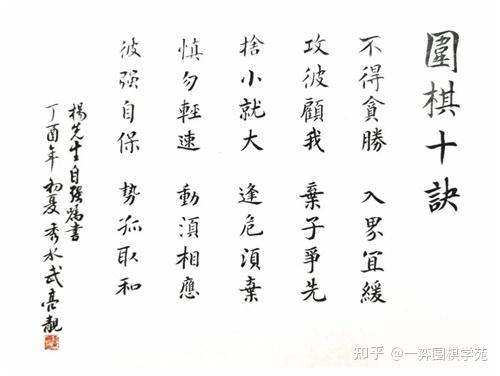 圍棋十訣
不得貪勝 入界宜緩
攻彼顧我 棄子爭先
捨小就大 逢危須棄
慎勿輕速 動須相應
彼强自保 勢孤取和
楊先生自强為書
丁酉年初夏秀水武亮靚
知乎 @一弈围棋学苑